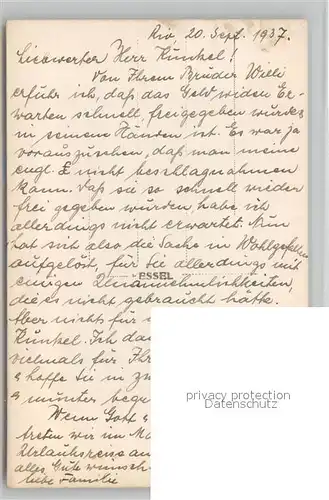 Rio, 20. Sept. 1937.
Liebwerter Herr Kunkel!
Von Ihrem Bruder Willi
erfuhr ich, daß das Geld wider Er-
warten schnell, freigegeben wurde,
in seinem Händen ist. Es war ja
vorauszusehen, daß man meine
engl. £ nicht beschlagnahmen
kann. Daß sie so schnell wieder
frei gegeben wurden, habe ich
allerdings nicht erwartet. Nun
hat sich also die Sache in Wohlgefallen
aufgelöst, für Sie allerdings mit
einigen Unannehmlichkeiten,
die es nicht gebraucht hätte.
Aber nichts für
Kunkel. Ich da
vielmals für Ihr
hoffe Sie in
munter
Wenn Gott
treten wir im
Urlaubsreise an
alles Gute wünsch
liebe Familie
ESSEL
privacy protection
Datenschutz